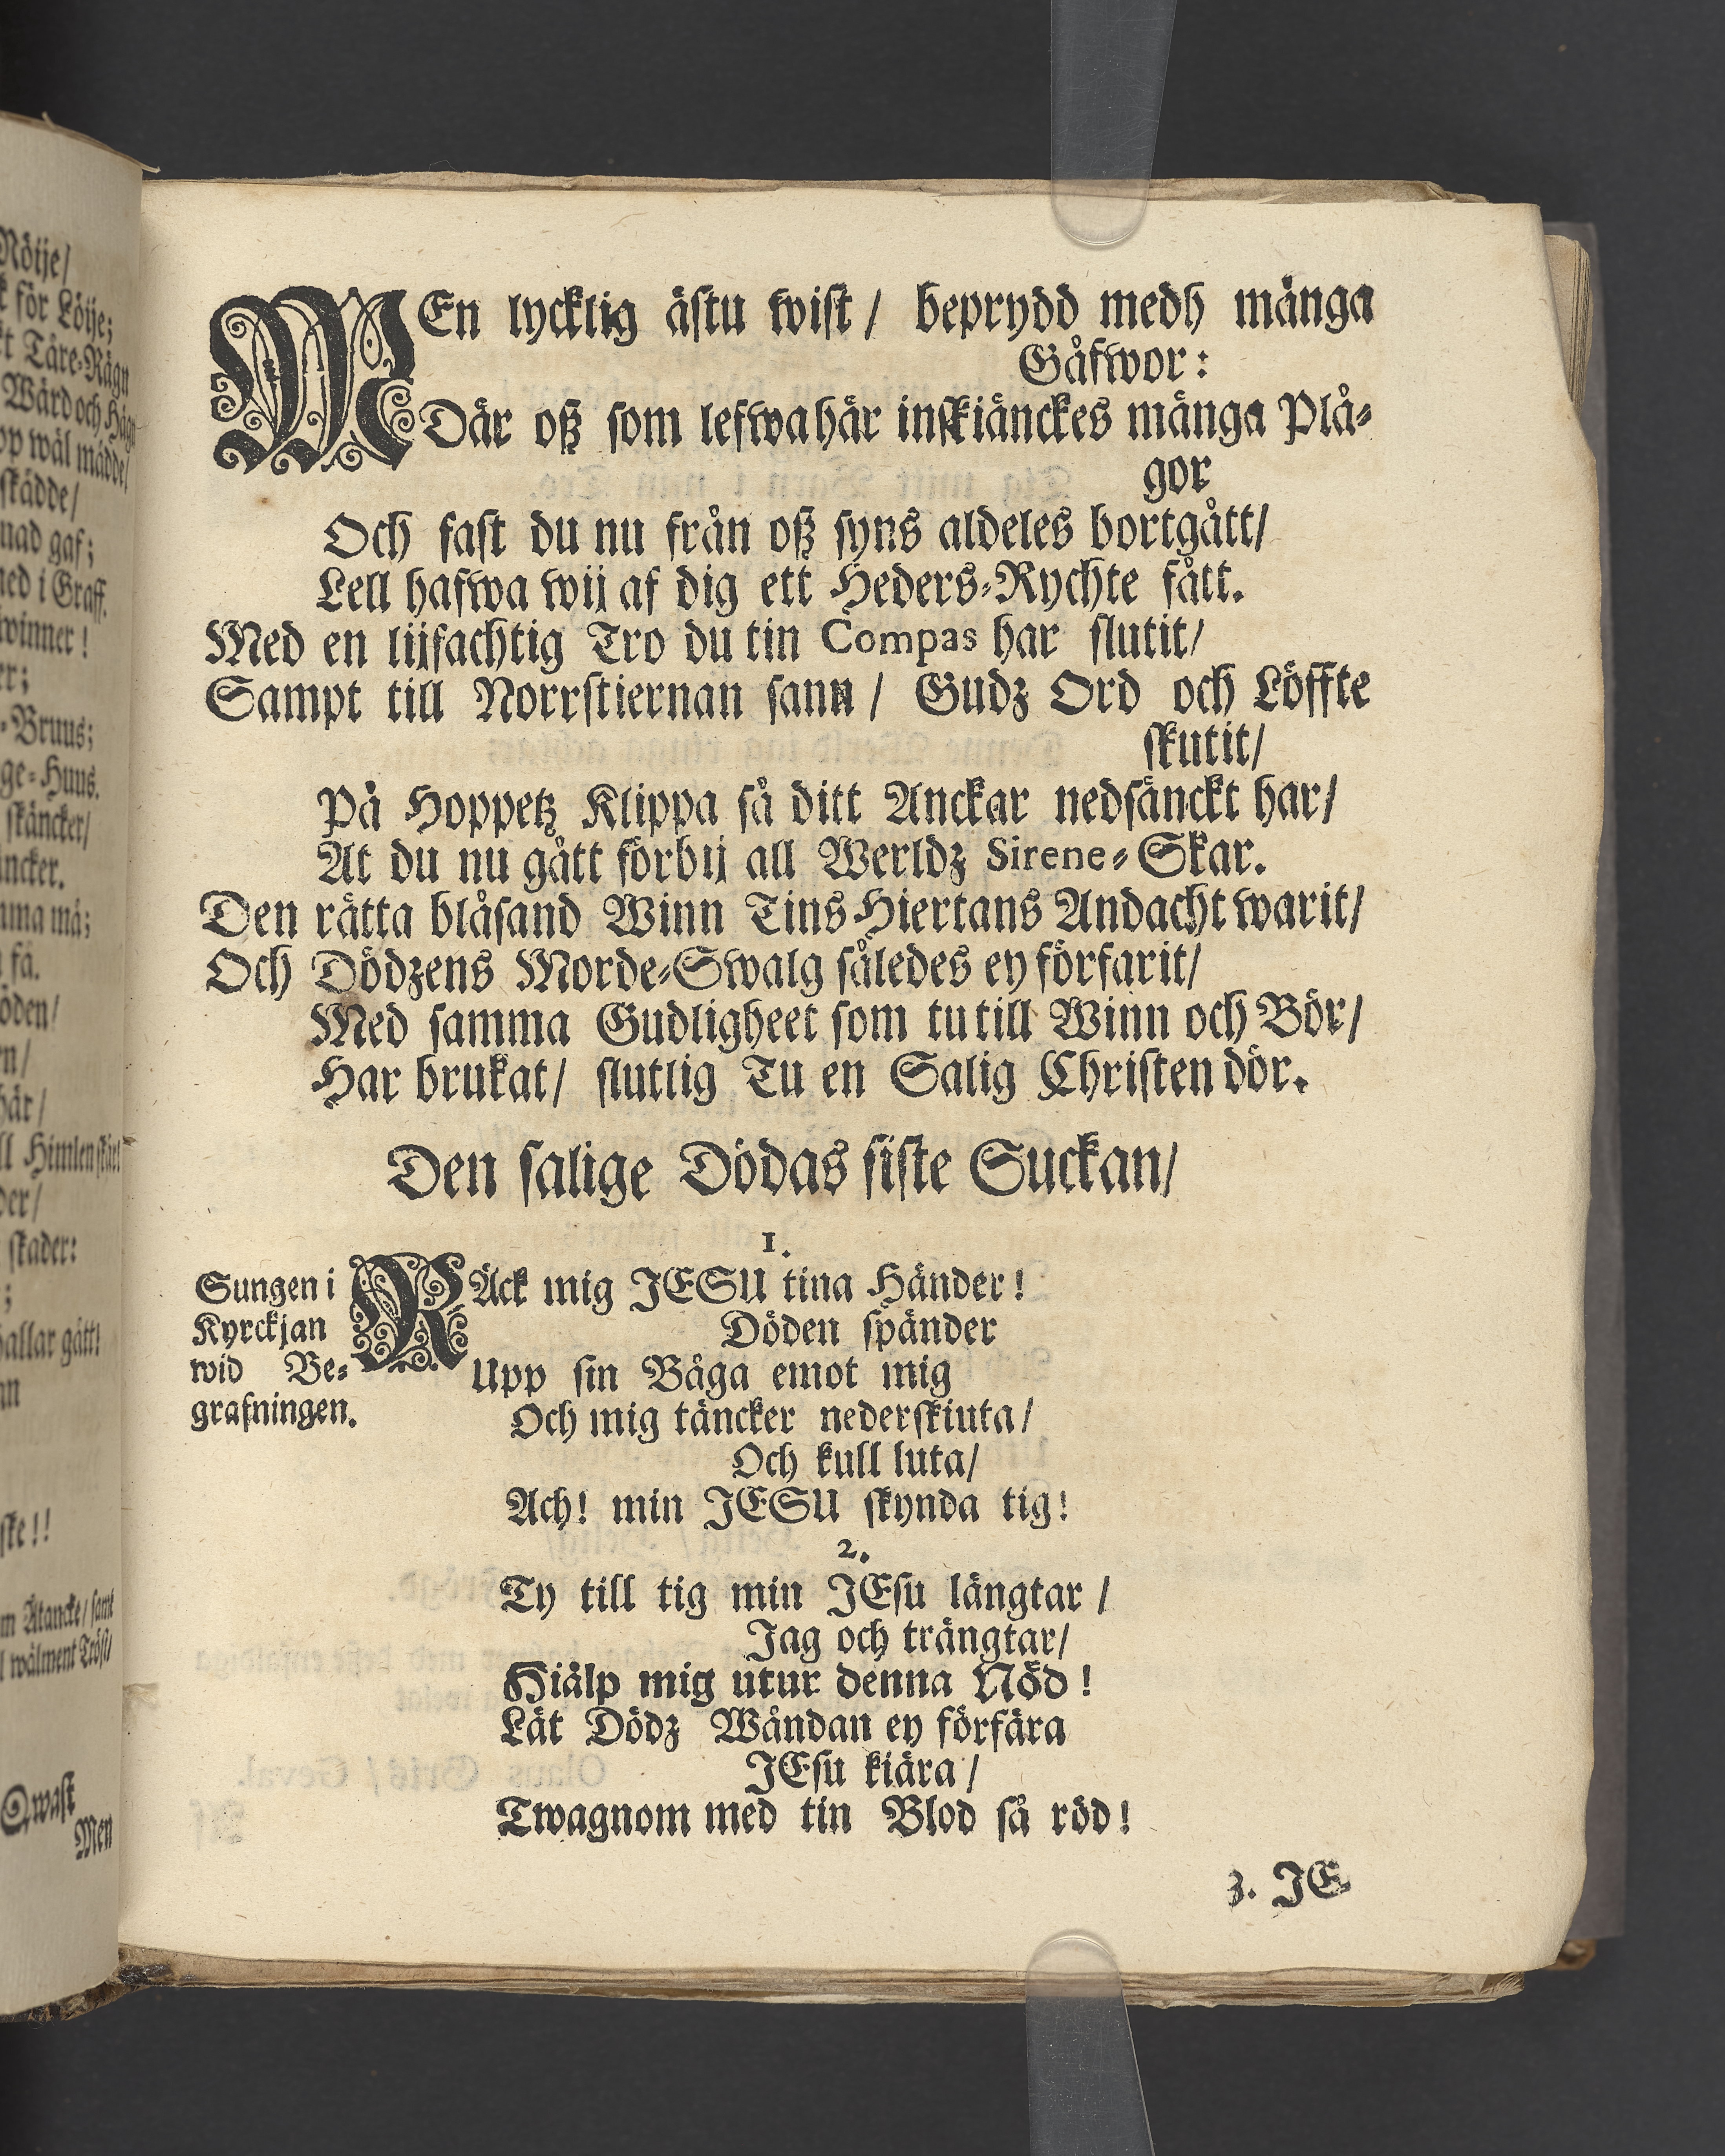 MEn lycklig ästu wist / beprydd medh många
Gåfwor:
Där oß som lefwa här inskiänckes många Plå⸗
gor
Och fast du nu från oß syns aldeles bortgått/
Lell hafwa wij af dig ett Heders⸗Rychte fått.
Med en lijfachtig Tro du tin Compas har slutit/
Sampt till Norrstiernan sann / Gudz Ord och Löffte
skutit/
På Hoppetz Klippa så ditt Anckar nedsänckt har/
At du nu gått förbij all Werldz Sirene⸗Skar.
Den rätta blåsand Winn Tins Hiertans Andacht warit/
Och Dödzens Morde⸗Swalg således ey förfarit/
Med samma Gudligheet som tu till Winn och Bör/
Har brukat/ slutlig Tu en Salig Christen dör.
Den salige Dödas siste Suckan/
1.
Sungen i
Kyrckjan
wid Be⸗
grafningen.
RÄck mig JESU tina Händer!
Döden spänder
Upp sin Båga emot mig
Och mig täncker nederskiuta/
Och kull luta/
Ach! min JESU skynda tig!
2.
Ty till tig min JEsu längtar /
Jag och trängtar/
Hiälp mig utur denna Nöd!
Lät Dödz Wåndan ey förfära
JEsu kiära/
Twagnom med tin Blod så röd!
3. JE
Nötje/
för Lötje;
Tåre⸗Rägn
Wård och Häg
wäl mådde/
skådde/
gaf;
i Graff.
winner!
⸗Bruus;
⸗Huus.
skäncker/
må;
få.
Himlen
skader:
gått!
Qwast
Men